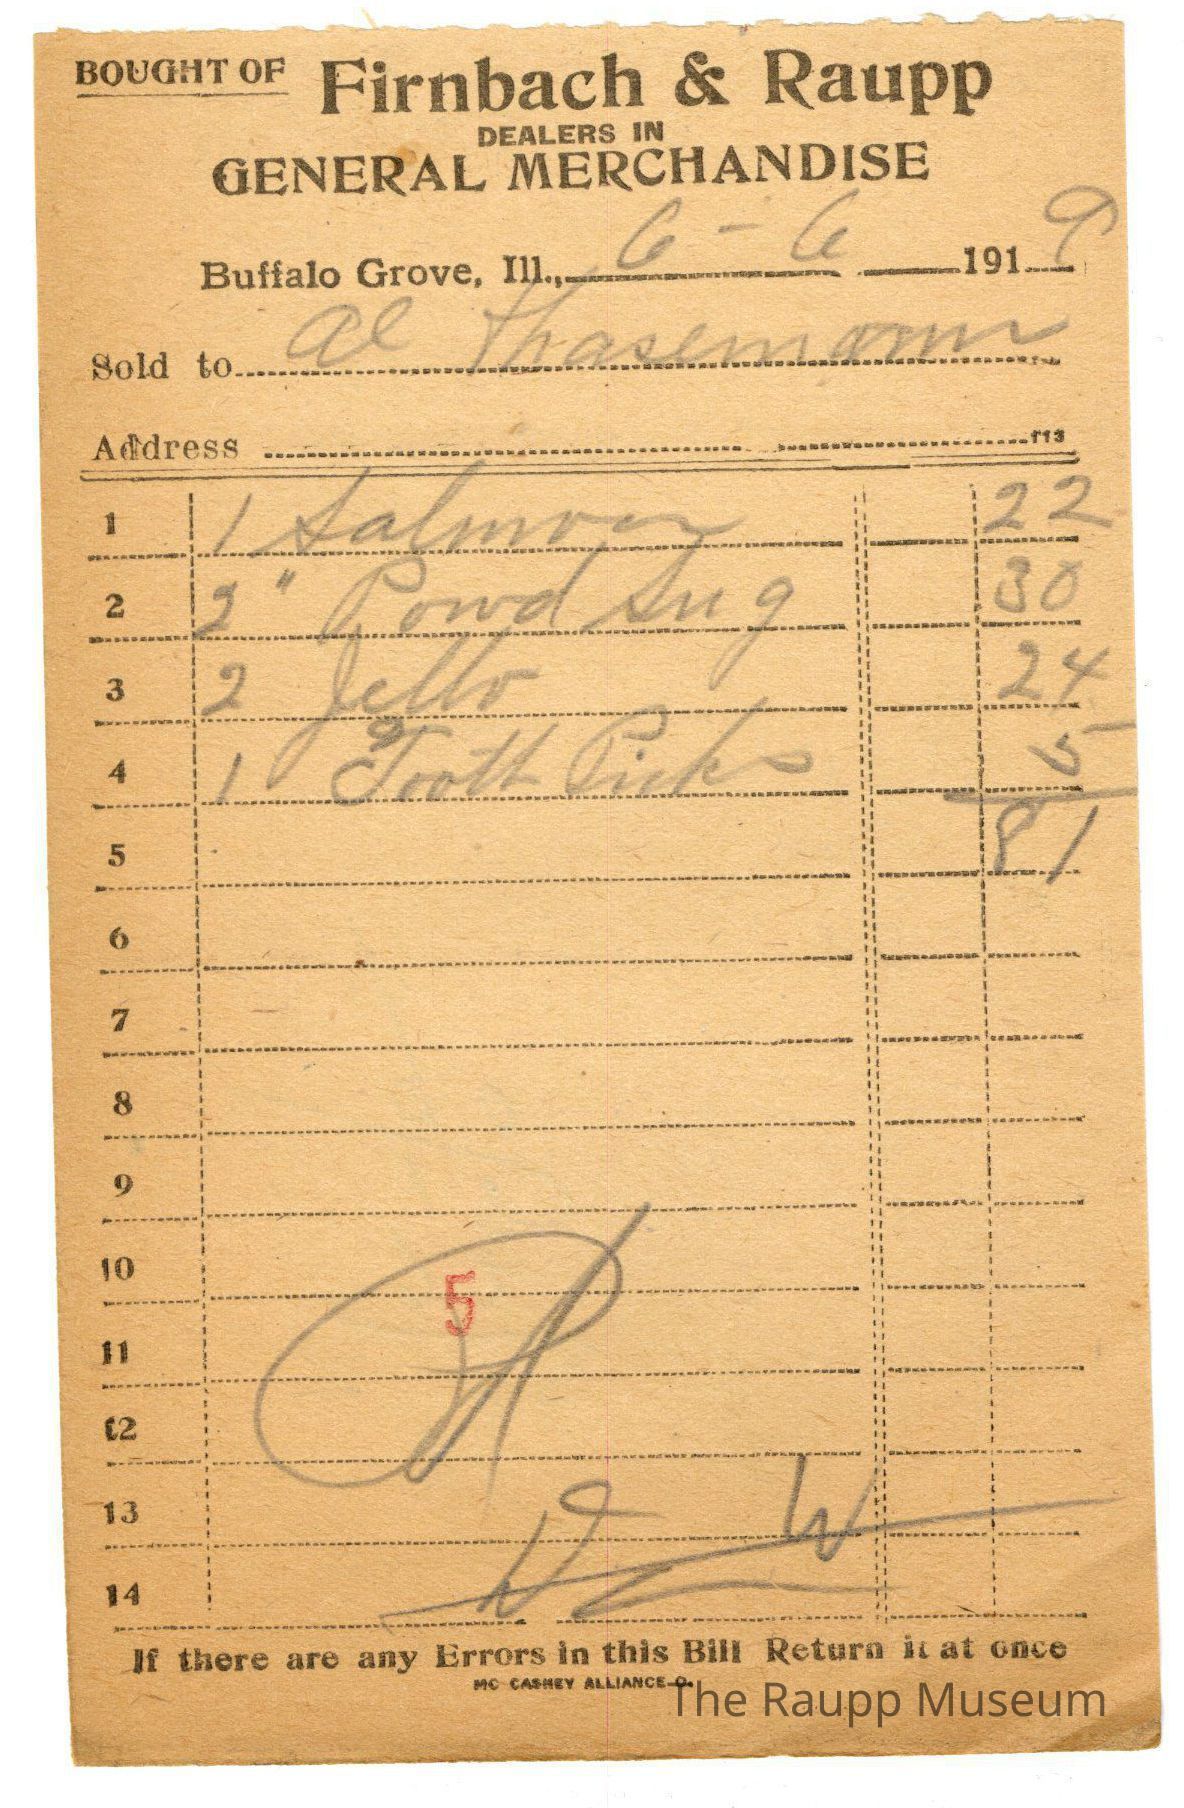 BOUGHT OF Firnbach & Raupp
DEALERS IN
GENERAL MERCHANDISE
Buffalo Grove, Ill., 6 - 6 1919
Sold to Al Thasemann
Address 113
1 1 Salmon 22
2 2 " Powd Sug 30
3 2 Jello 24
4 1 Tooth Picks 5
5 81
6
7
8
9
10
5
11
12
13
W
14
If there are any Errors in this Bill Return it at once
MC CASKEY ALLIANCE O.
The Raupp Museum